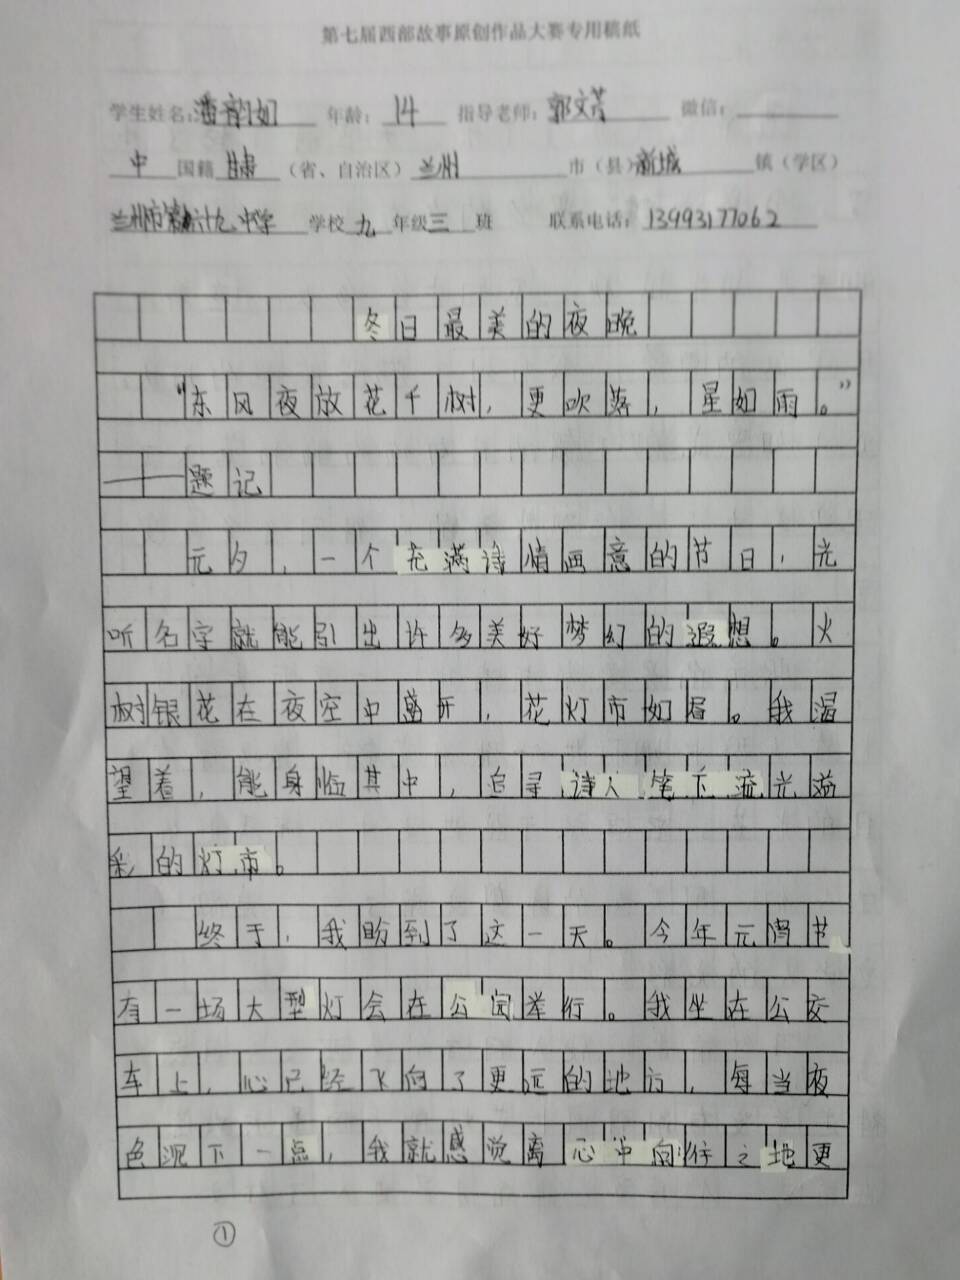 第七届西部故事原创作品大赛专用稿纸
学生姓名：潘韵如 年龄：14 指导老师：郭文芳 微信：
中国籍 甘肃（省、自治区）兰州市（县）新城镇（学区）
兰州市第六十九中学学校九年级三班 联系电话：13993177062
冬日最美的夜晚
“东风夜放花千树，更吹落，星如雨。”
——题记
元夕，一个充满诗情画意的节日，光
听名字就能引出许多美好梦幻的遐想。火
树银花在夜空中盛开，花灯市如昼。我渴
望着，能身临其中，追寻诗人笔下流光溢
彩的灯市。
终于，我盼到了这一天。今年元宵节
有一场大型灯会在公园举行。我坐在公交
车上，心已经飞向了更远的地方，每当夜
色沉下一点，我就感觉离心中向往之地更
①